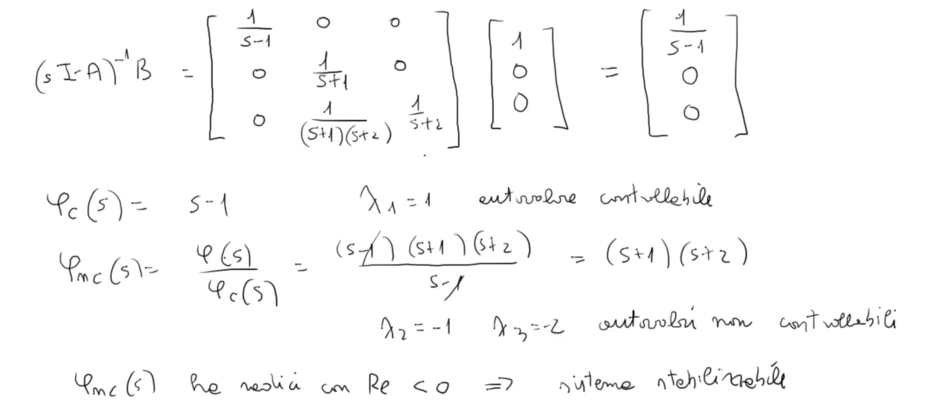 (sI-A)⁻¹B = [ 1/(s-1) 0 0 ; 0 1/(s+1) 0 ; 0 1/((s+1)(s+2)) 1/(s+2) ] [ 1 ; 0 ; 0 ] = [ 1/(s-1) ; 0 ; 0 ]
φc(s) = s-1 λ1 = 1 autovalore controllabile
φnc(s) = φ(s)/φc(s) = (s-1)(s+1)(s+2)/(s-1) = (s+1)(s+2)
λ2 = -1 λ3 = -2 autovalori non controllabili
φnc(s) ha radici con Re < 0 ⇒ sistema stabilizzabile